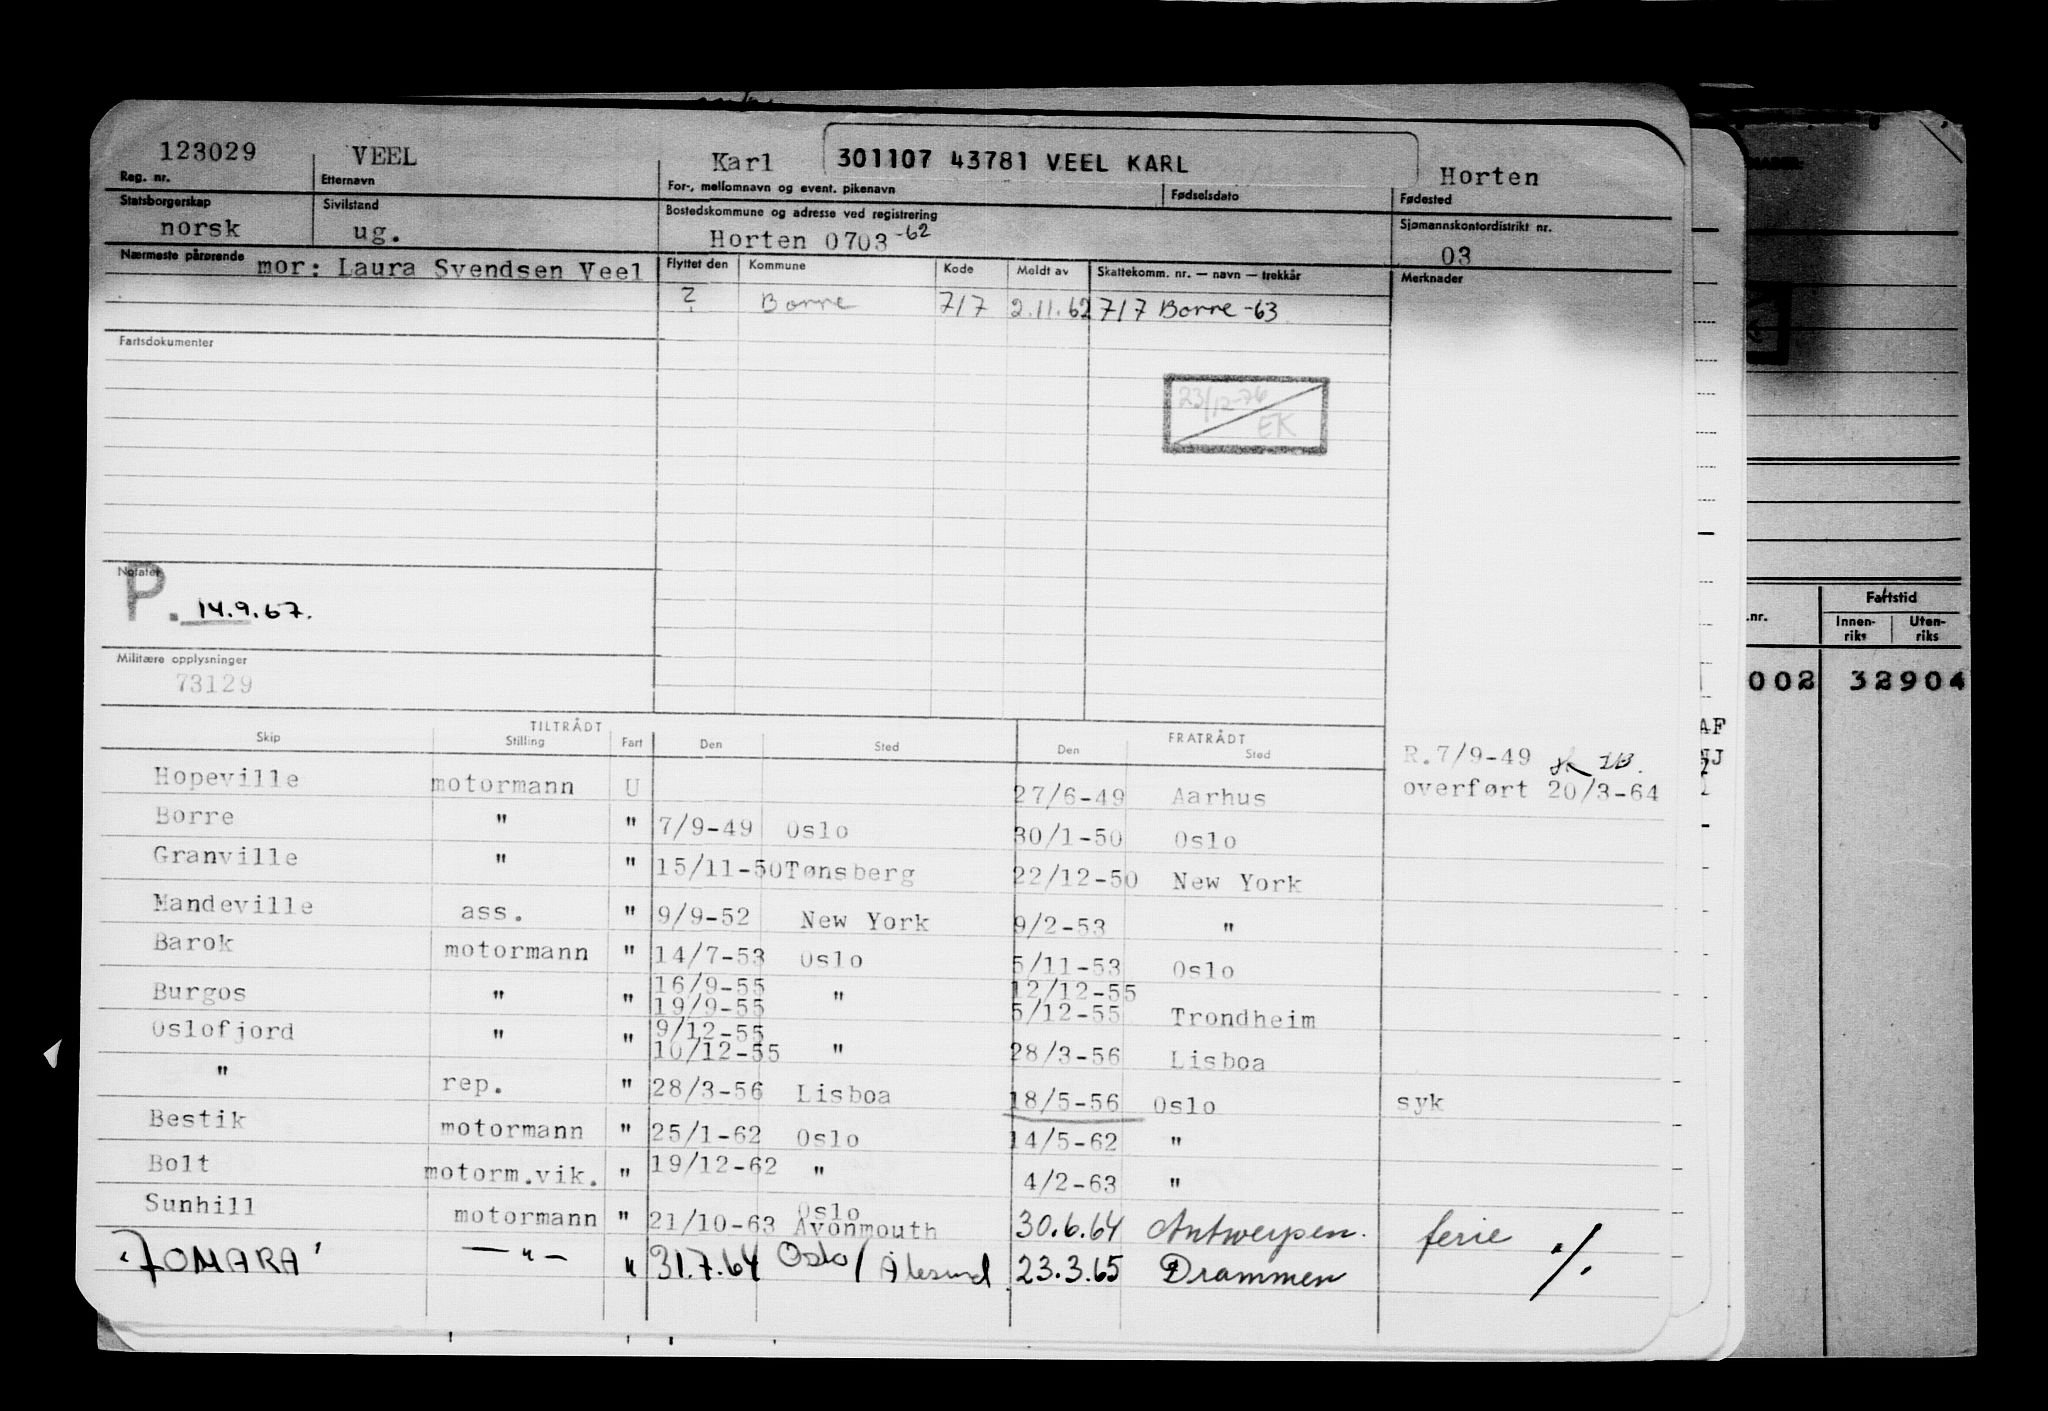 123029 VEEL Karl 301107 43781 VEEL KARL Horten
Reg. nr. Etternavn For-, mellomnavn og event. pikenavn Fødselsdato Fødested
Statsborgerskap Sivilstand Bostedskommune og adresse ved registrering Sjømannskontordistrikt nr.
norsk ug. Horten 0703 -62 03
Nærmeste pårørende mor: Laura Svendsen Veel Flyttet den Kommune Kode Meldt av Skattekomm. nr. — navn — trekkår Merknader
? Borre 717 2.11.62 717 Borre -63
Fartsdokumenter
23/12-76
EK
Notater
P. 14.9.67.
Militære opplysninger
73129
TILTRÅDT FRATRÅDT
Skip Stilling Fart Den Sted Den Sted
R.7/9-49
Hopeville motormann U 27/6-49 Aarhus overført 20/3-64
Borre " " 7/9-49 Oslo 30/1-50 Oslo
Granville " " 15/11-50 Tønsberg 22/12-50 New York
Mandeville ass. " 9/9-52 New York 9/2-53 "
Barok motormann " 14/7-53 Oslo 5/11-53 Oslo
16/9-55 12/12-55
Burgos " " 19/9-55 " 5/12-55 Trondheim
9/12-55
Oslofjord " " 10/12-55 " 28/3-56 Lisboa
" rep. " 28/3-56 Lisboa 18/5-56 Oslo syk
Bestik motormann " 25/1-62 Oslo 14/5-62 "
Bolt motorm.vik. " 19/12-62 " 4/2-63 "
Oslo
Sunhill motormann " 21/10-63 Avonmouth 30.6.64 Antwerpen. ferie ./.
"JOMARA" —"— " 31.7.64 Oslo/Ålesund 23.3.65 Drammen
.nr. Fartstid
Innen-riks Uten-riks
002 32904
AF